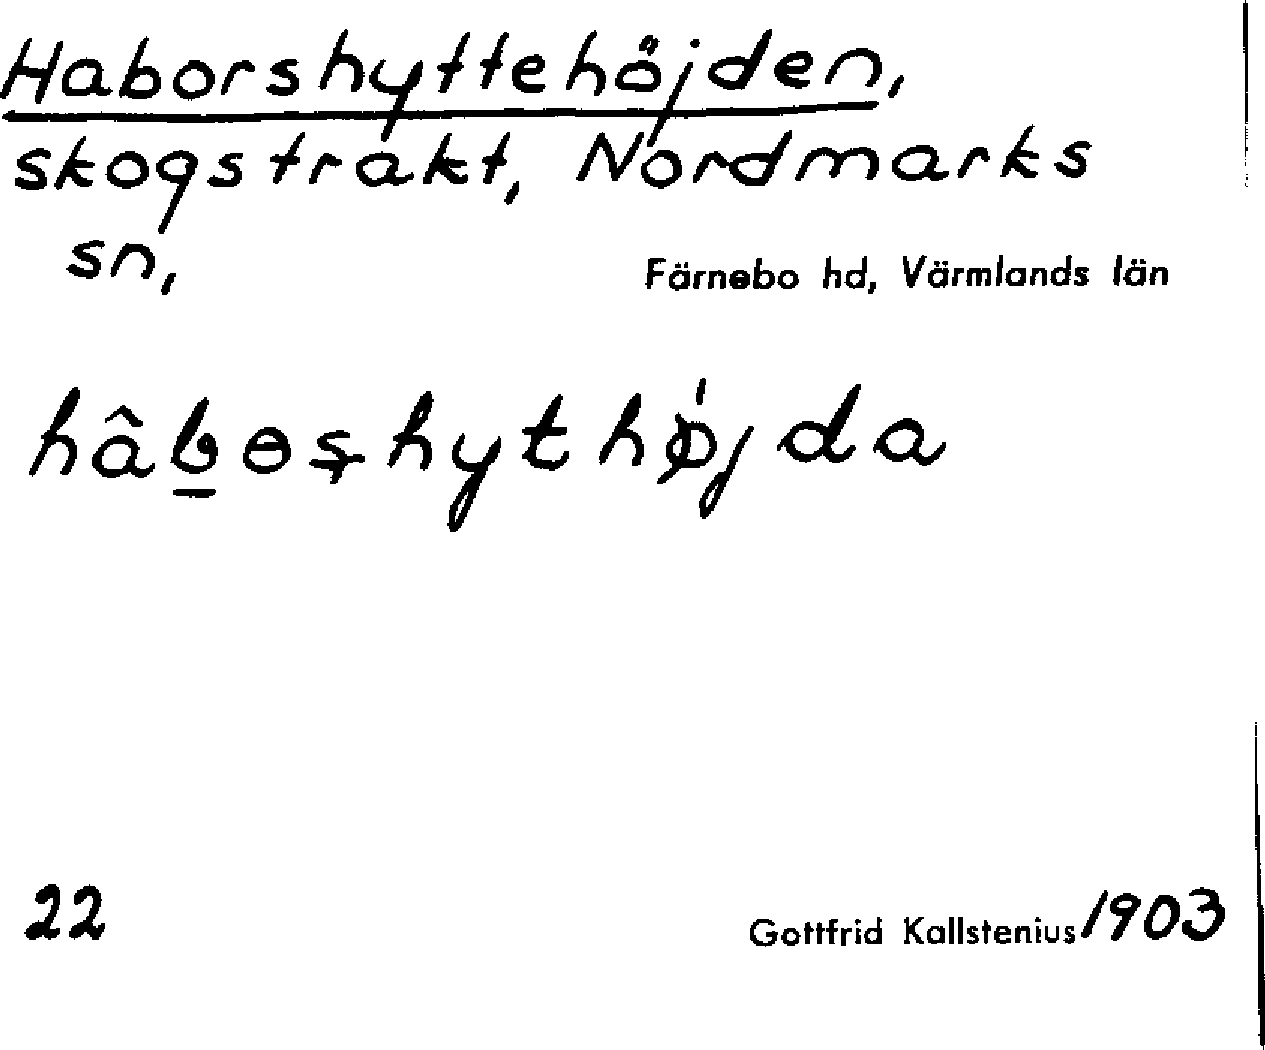 Haborshyttehöjden,
skogstrakt, Nordmarks
sn,
Färnebo hd, Värmlands län
hâbɵşhythǿjda
22
Gottfrid Kallstenius 1903